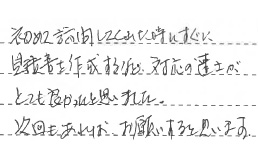 初めて訪問してくれた時にすぐに
見積書を作成する他、対応の速さが
とても良かったと思いました。
次回もあれば お願いすると思います